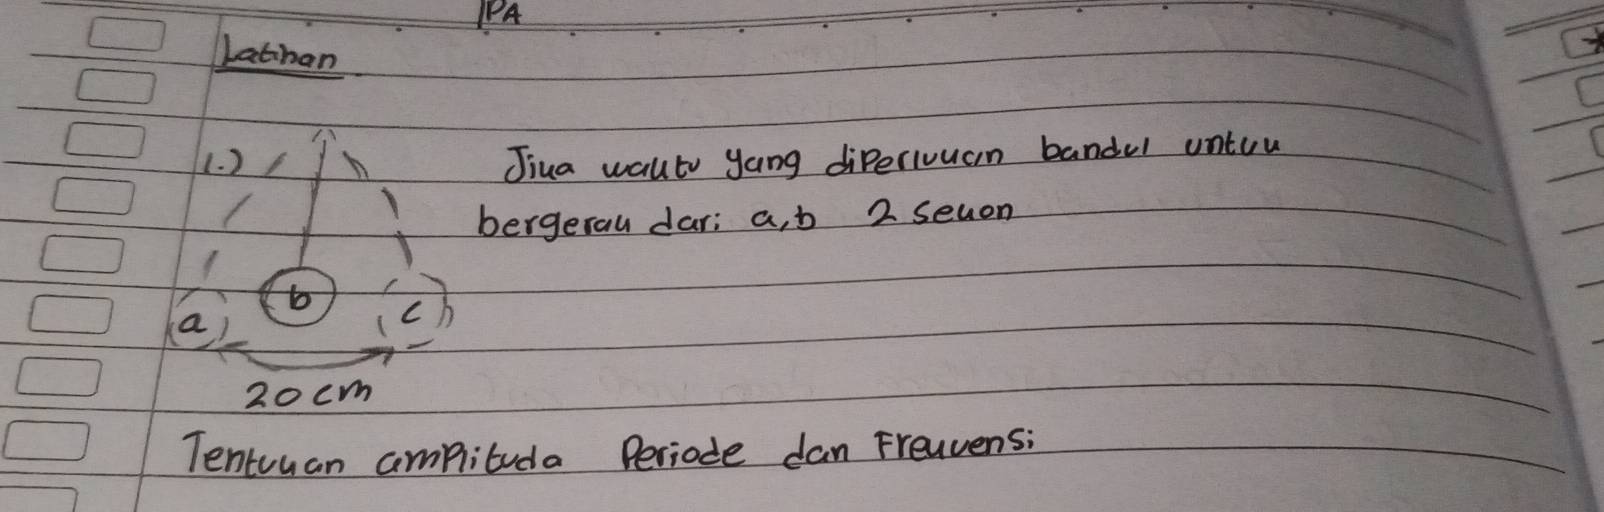 IPA
Latihan
1.) Jika waktu yang diperlukan bandul untuk
bergerak dari a,b 2 sekon
a b c
20 cm
Tentukan amplituda Periode dan Frekuensi